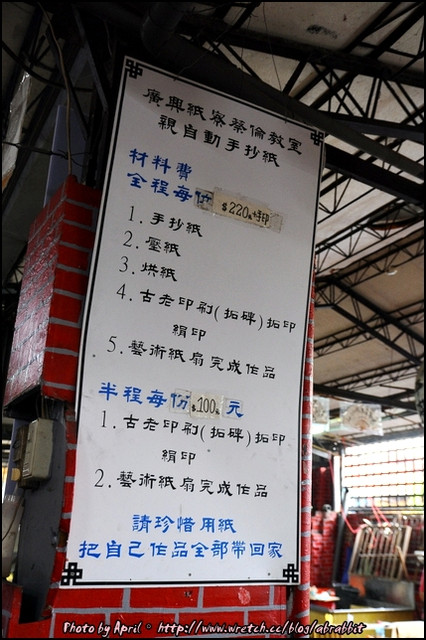 廣興紙寮蔡倫教室
親自動手抄紙
材料費
全程每份 $220元+手印
1. 手抄紙
2. 壓紙
3. 烘紙
4. 古老印刷(拓碑)拓印
絹印
5. 藝術紙扇完成作品
半程每份 $100元 元
1. 古老印刷(拓碑)拓印
絹印
2. 藝術紙扇完成作品
請珍惜用紙
把自己作品全部帶回家
Photo by April。http://www.wretch.cc/blog/abrabbit